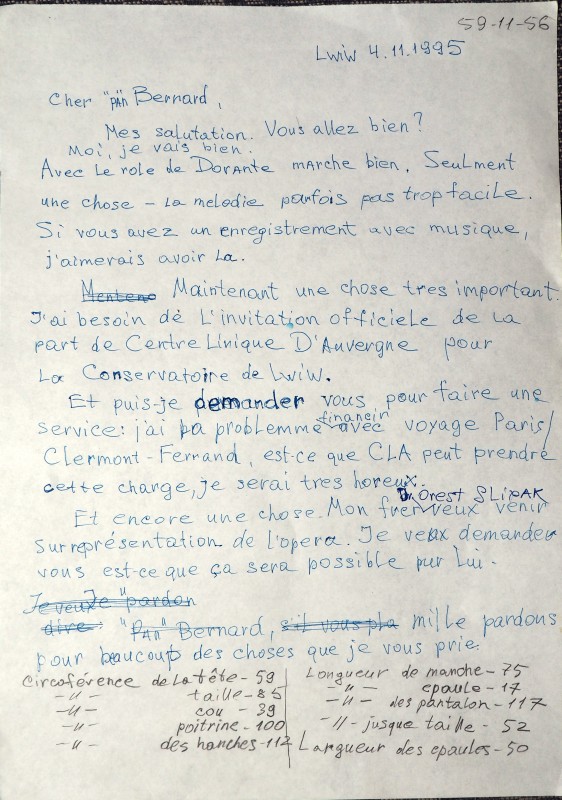 59-11-56
Lwiw 4.11.1995
Cher "PAN" Bernard,
Mes salutation. Vous allez bien?
Moi, je vais bien.
Avec le role de Dorante marche bien. Seulment
une chose – la melodie parfois pas trop facile.
Si vous avez un enregistrement avec musique,
j'aimerais avoir la.
Menteno Maintenant une chose tres important.
J'ai besoin de l'invitation officiele de la
part de Centre Linique D'Auvergne pour
La Conservatoire de Lwiw.
Et puis-je demander vous pour faire une
service: j'ai pa problemme financir avec voyage Paris/
Clermont-Ferrand, est-ce que CLA peut prendre
cette charge, je serai tres horeux.
Orest SLIPAK
Et encore une chose. Mon frer veux venir
sur représentation de l'opera. Je veux demander
vous est-ce que ça sera possible pur lui.
Je veux Je "pardon
dire: "PAN" Bernard, s'il vous pla mille pardons
pour beaucoup des choses que je vous prie.
Circoférence de la tête – 59
–"– taille – 85
–"– cou – 39
–"– poitrine – 100
–"– des hanches – 112
Longueur de manche – 75
–"– epaule – 17
–"– des pantalon – 117
–"– jusque taille – 52
Largueur des epaules – 50